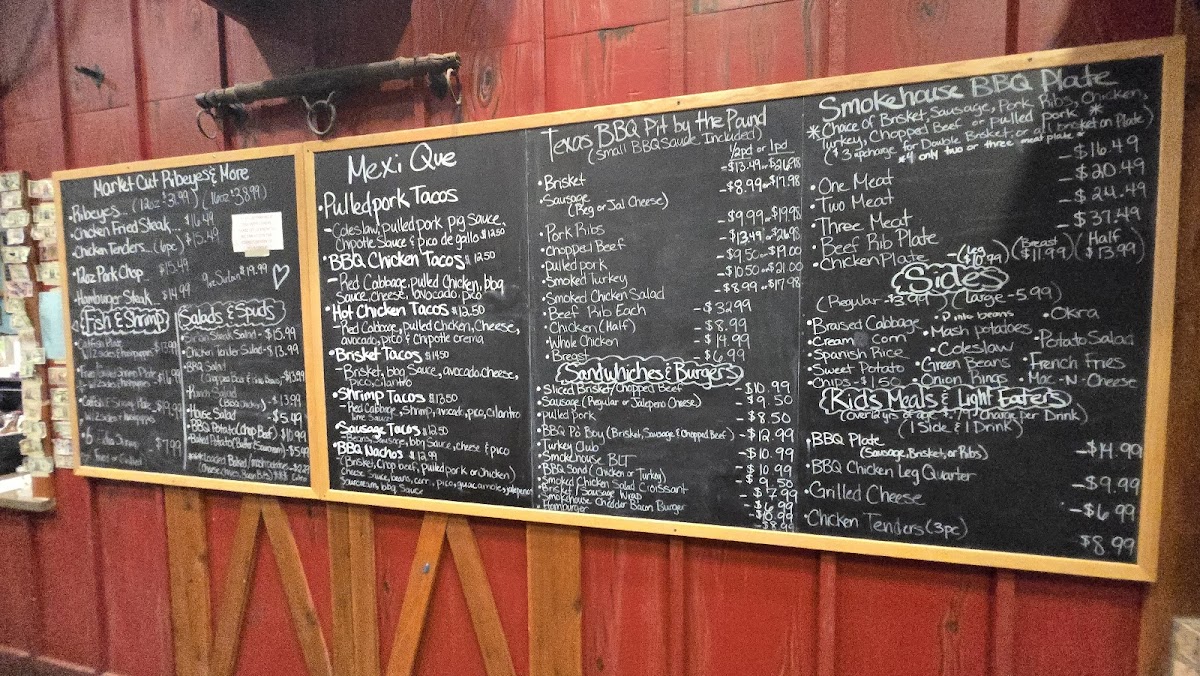 Market Cut Ribeyes & More
• Ribeyes... (12oz $31.99) (16oz $38.99)
• Chicken Fried Steak... $16.49
• Chicken Tenders... (6pc) $15.49
12oz Pork Chop $15.49
9oz Sirloin $19.99
• Hamburger Steak... $14.99
Fish & Shrimp
• Catfish Plate
Salads & Spuds
Sirloin Steak Salad - $15.99
Chicken Tender Salad - $13.99
BBQ Salad
- $13.99
Ranch Salad
- $13.99
• House Salad - $5.99
• BBQ Potato (Chop Beef) $10.99
• Baked Potato
Mexi Que
• Pulled pork Tacos
- Coleslaw, pulled pork, pig sauce,
Chipotle Sauce & pico de gallo $12.50
• BBQ Chicken Tacos $12.50
- Red Cabbage, pulled Chicken, bbq
Sauce, cheese, avocado, pico
• Hot Chicken Tacos $12.50
- Red Cabbage, pulled Chicken, Cheese,
avocado, pico & Chipotle crema
• Brisket Tacos $14.50
- Brisket, bbq Sauce, avocado, cheese,
pico, cilantro
• Shrimp Tacos $13.50
- Red Cabbage, shrimp, avocado, pico, cilantro
lime sauce
• Sausage Tacos $12.50
- Beans, Sausage, bbq Sauce, cheese & pico
• BBQ Nachos $12.99
(Brisket, Chop beef, pulled pork or Chicken)
Cheese Sauce, beans, corn, pico, guacamole, jalapenos
Sourcream, bbq Sauce
Texas BBQ Pit by the Pound
(small BBQ Sauce Included)
1/2pd or 1pd
• Brisket - $13.49 or $26.98
• Sausage - $8.99 or $17.98
(Reg or Jal Cheese)
• Pork Ribs - $9.99 or $19.98
• Chopped Beef - $13.49 or $26.98
• Pulled pork - $9.50 or $19.00
• Smoked Turkey - $10.50 or $21.00
• Smoked Chicken Salad - $8.99 or $17.98
• Beef Rib Each - $32.99
• Chicken (Half) - $8.99
• Whole Chicken - $14.99
• Breast - $6.99
Sandwhiches & Burgers
• Sliced Brisket/Chopped Beef - $10.99
• Sausage (Regular or Jalapeno Cheese) - $9.50
• pulled Pork - $8.50
• BBQ Po Boy (Brisket, Sausage & Chopped Beef) - $12.99
• Turkey Club - $10.99
• Smokehouse BLT - $10.99
• BBQ Sand (Chicken or Turkey) - $9.50
• Smoked Chicken Salad Croissant - $7.99
• Brisket/Sausage Wrap - $10.99
• Smokehouse Chedder Bacon Burger
• Hamburger - $8.99
Smokehouse BBQ Plate
* Choice of Brisket, Sausage, Pork Ribs, Chicken,
Turkey, Chopped Beef or pulled pork *
($3 upcharge for Double Brisket, or all brisket on Plate)
*4 only two or three meat plate *
• One Meat - $16.49
• Two Meat - $20.49
• Three Meat - $24.49
• Beef Rib Plate - $37.49
• Chicken Plate - (Leg $10.99) (Breast $11.99) (Half $13.99)
Sides
(Regular - $3.99) (Large - 5.99)
• Braised Cabbage • Pinto beans • Okra
• Cream corn • Mash potatoes • Potato Salad
• Spanish Rice • Coleslaw • French Fries
• Sweet Potato • Green Beans • Mac-N-Cheese
• Chips - $1.50 • Onion Rings
Kids Meals & Light Eaters
(Over 12 yrs of age $.99 charge per Drink)
(1 Side & 1 Drink)
• BBQ Plate - $14.99
(Sausage, Brisket, or Ribs)
• BBQ Chicken Leg Quarter - $9.99
• Grilled Cheese - $6.99
• Chicken Tenders (3pc) $8.99